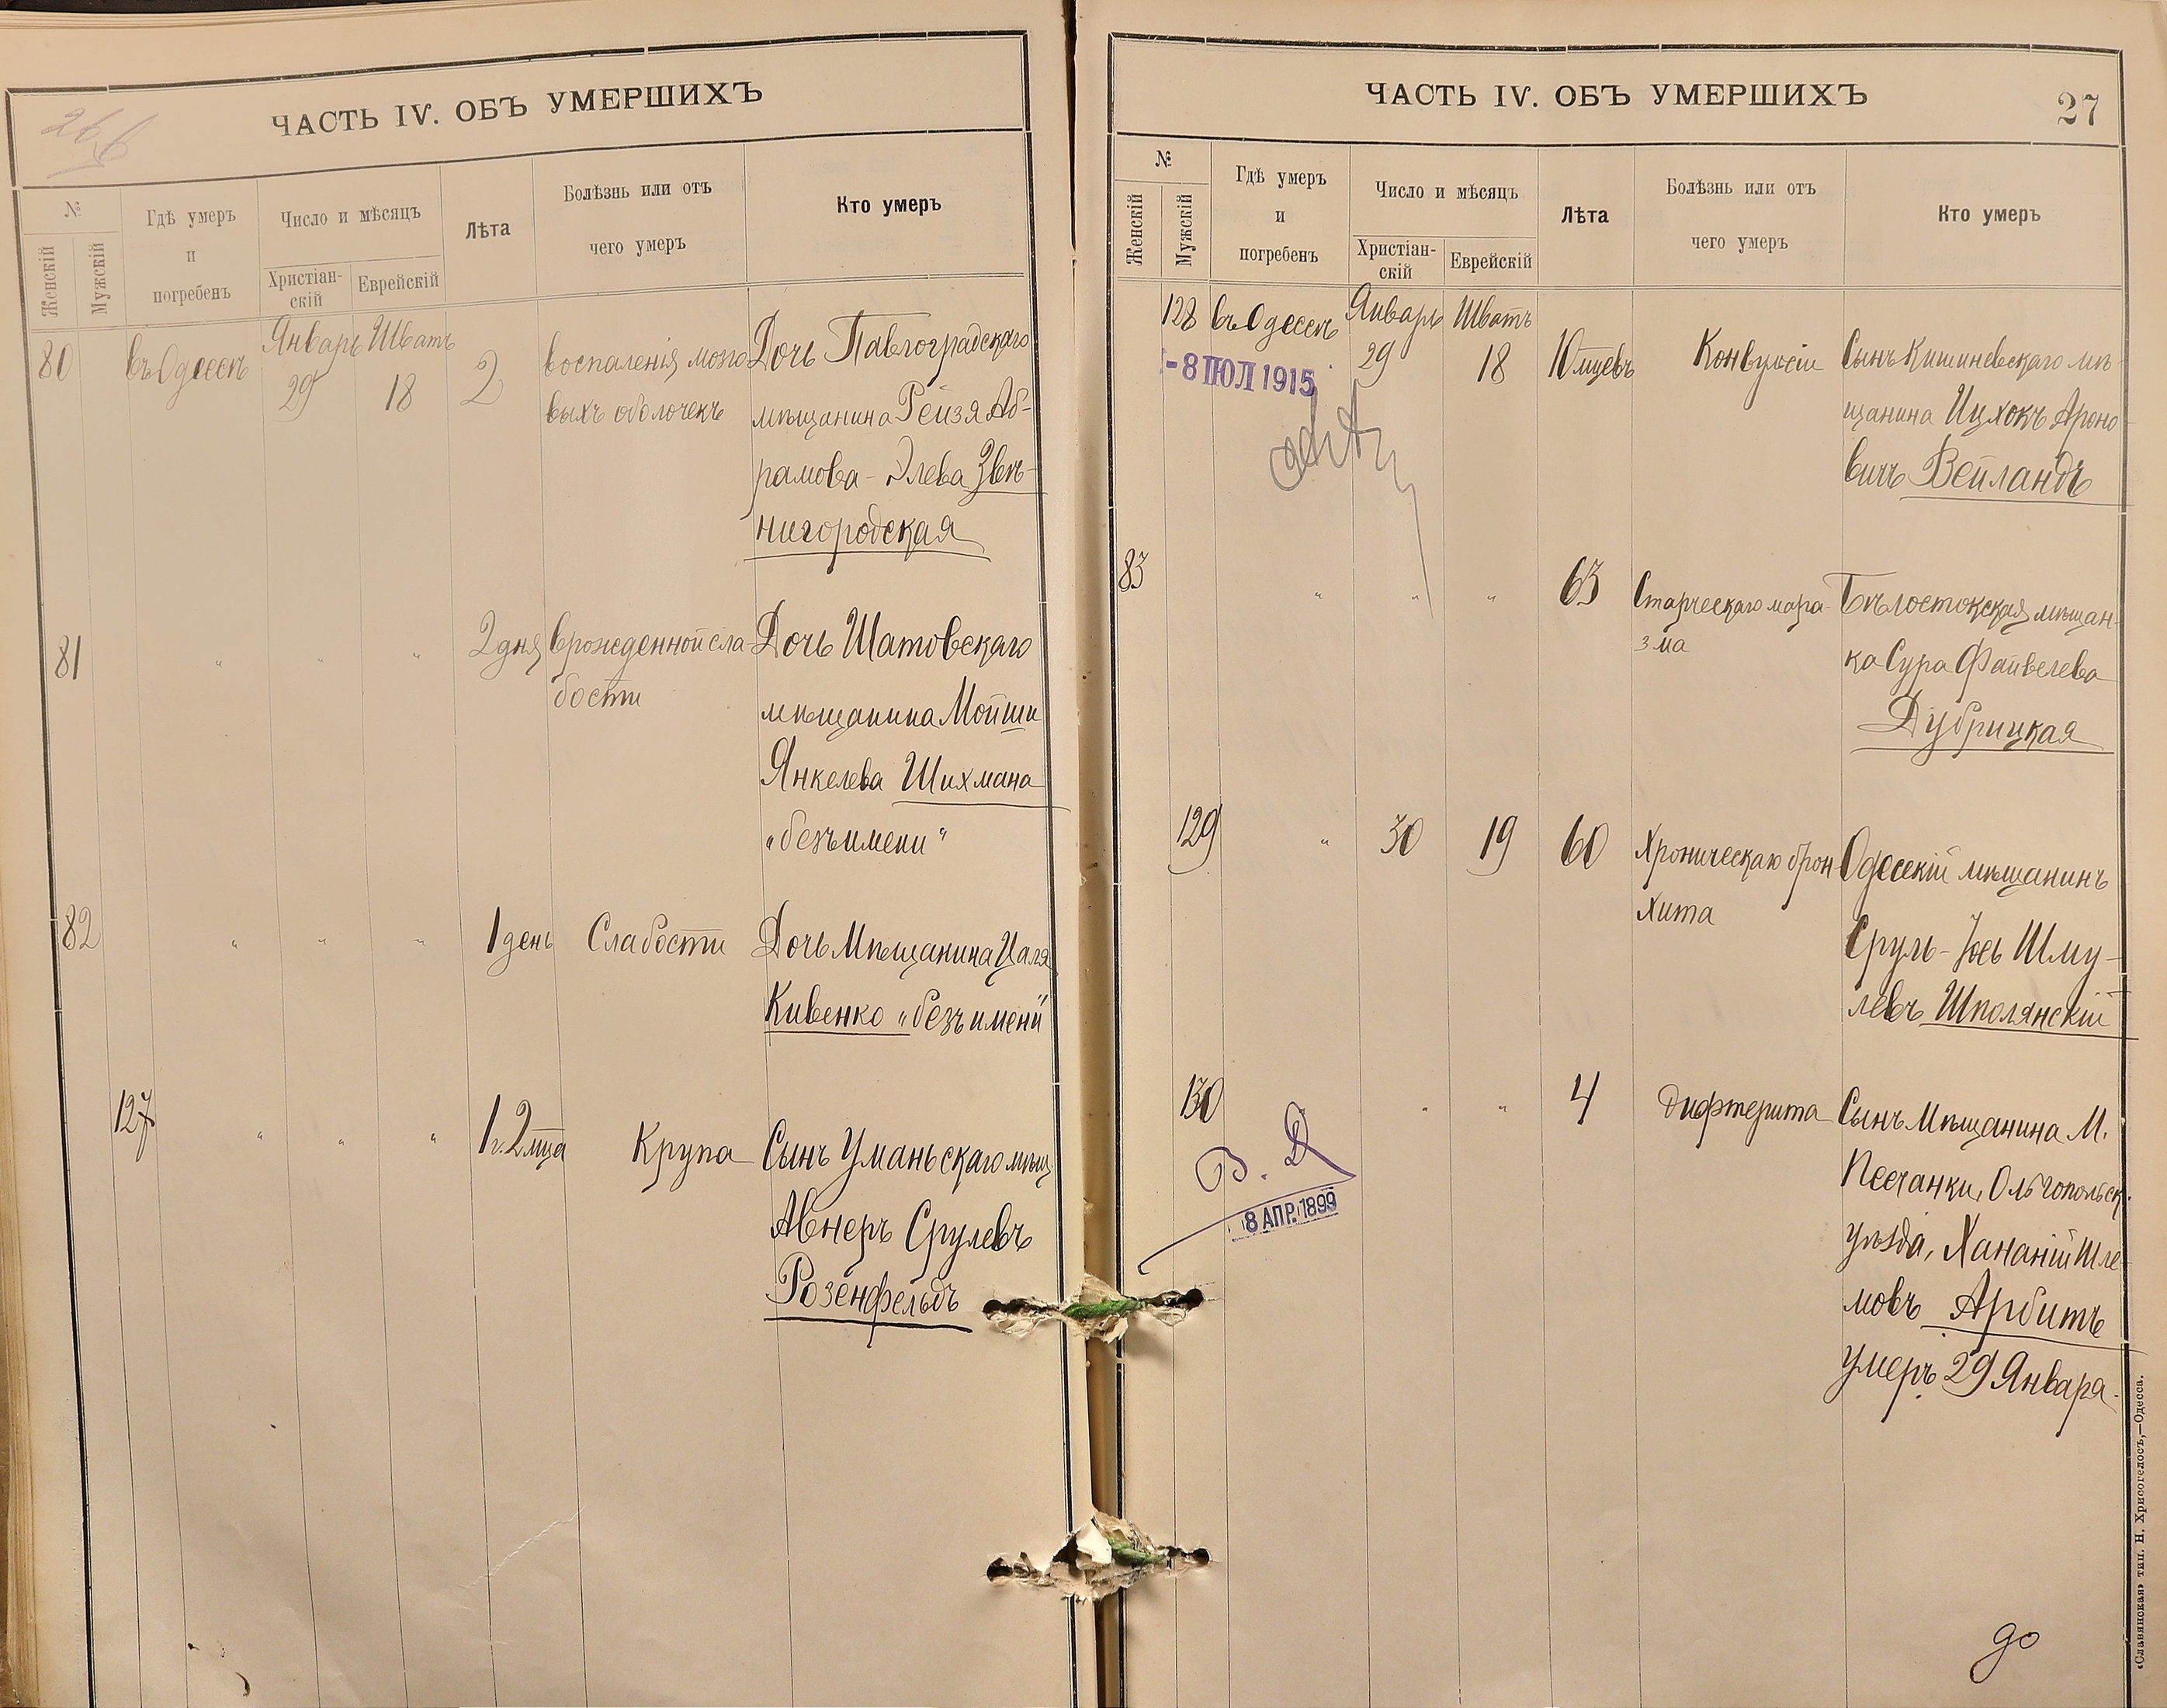 26б
ЧАСТЬ IV. ОБЪ УМЕРШИХЪ
№
Женскій
Мужскій
Гдѣ умеръ
и
погребенъ
Число и мѣсяцъ
Христіан-
скій
Еврейскій
Лѣта
Болѣзнь или отъ
чего умеръ
Кто умеръ
80 въ Одессѣ Январь 29 Шватъ 18 2 воспаленія мозго
выхъ оболочекъ
Дочь Павлоградскаго
мѣщанина Рейзя Аб-
рамова-Элева Звѣ-
нигородская
81 " " " 2 дня врожденной сла-
бости
Дочь Шатовскаго
мѣщанина Мойши
Янкелева Шихмана
„безъ имени"
82 " " " 1 день Слабости Дочь Мѣщанина Цаля
Кивенко „безъ имени"
127 " " " 1 г. 2 мца Крупа Сынъ Уманьскаго мѣщ
Авнеръ Срулевъ
Розенфельдъ
ЧАСТЬ IV. ОБЪ УМЕРШИХЪ
27
№
Женскій
Мужскій
Гдѣ умеръ
и
погребенъ
Число и мѣсяцъ
Христіан-
скій
Еврейскій
Лѣта
Болѣзнь или отъ
чего умеръ
Кто умеръ
128 въ Одессѣ Январь 29 Шватъ 18 10 мцевъ Конвульсіи Сынъ Кишиневскаго мѣ-
щанина Ицхокъ Ароно
вичъ Вейландъ
-8 ІЮЛ 1915
83 " " " 63 Старческаго мара-
зма
Бѣлостокская мѣщан-
ка Сура Файвелева
Дубрицкая
129 " 30 19 60 Хроническаго брон
хита
Одесскій мѣщанинъ
Сруль-Іось Шму-
левъ Шполянскій
130 " " " 4 дифтерита Сынъ Мѣщанина М.
Песчанки, Ольгопольск.
уѣзда, Хананій Шле-
мовъ Арбитъ
умеръ 29 Января.
В. Д
8 АПР. 1899
до
«Славянская» тип. Н. Хрисогелосъ,—Одесса.